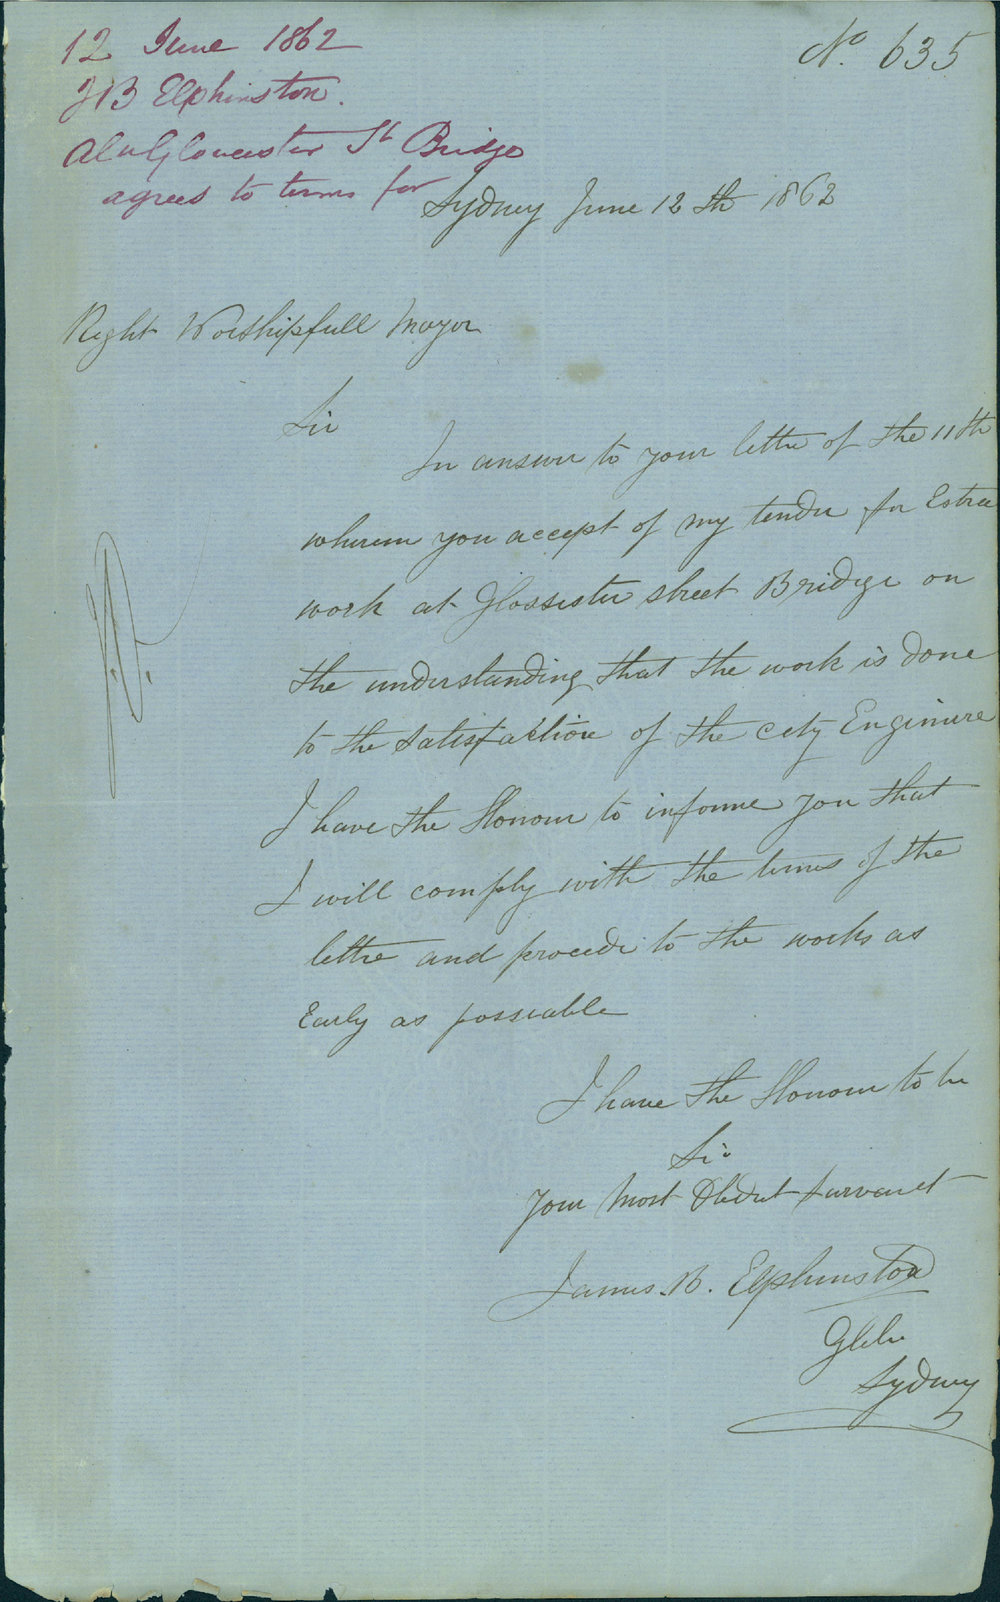 12 June 1862
JB Elphinston.
Gloucester St Bridge
agrees to terms for
No. 635
Sydney June 12th 1862
Right Worshipfull Mayor
Sir
In answer to your lettre of the 11th
wherein you accept of my tender for Extra
work at Glossester street Bridge on
the understanding that the work is done
to the satisfaction of the City Enginere
I have the Honour to informe you that
I will comply with the terms of the
lettre and procede to the works as
Early as posseable
I have the Honour to be
Sir
Your Most Obedt survant
James. B. Elphinston
Glebe
Sydney